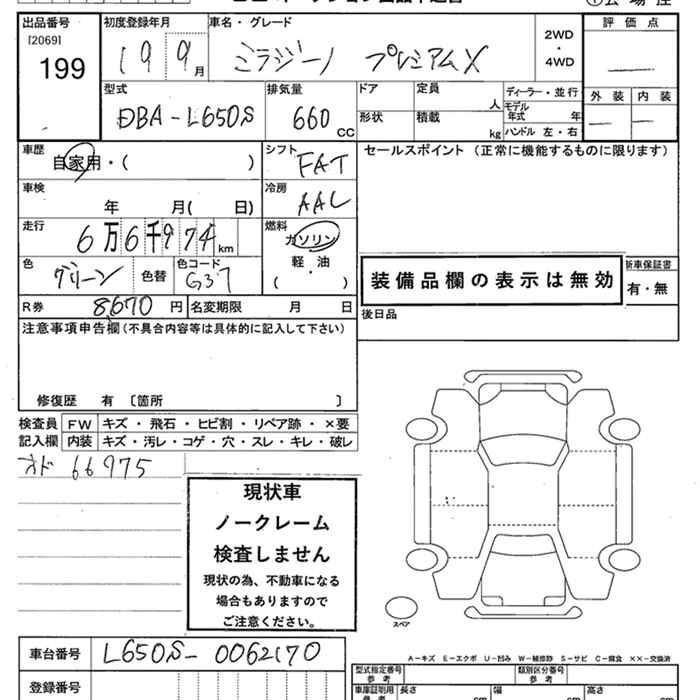 出品番号 初度登録年月 車名・グレード 2WD・4WD 評価点
[2069]
199 19 9月 ミラジーノ プレミアムX
型式 排気量 ドア 定員 人 ディーラー・並行 外装 内装
DBA-L650S 660CC 形状 積載 kg モデル年式 年 ハンドル 左・右
車歴 自家用・( ) シフト FAT セールスポイント (正常に機能するものに限ります)
車検 年 月( 日) 冷房 AAC
走行 6万6千974km 燃料 ガソリン 軽油 ( ・ )
色 グリーン 色替 色コード G37 装備品欄の表示は無効 新車保証書 有・無
R券 8670円 名変期限 月 日 後日品
注意事項申告欄(不具合内容等は具体的に記入して下さい)
修復歴 有 〔箇所 〕
検査員 FW キズ・飛石・ヒビ割・リペア跡・×要
記入欄 内装 キズ・汚レ・コゲ・穴・スレ・キレ・破レ
オド 66975
現状車
ノークレーム
検査しません
現状の為、不動車になる
場合もありますので
ご注意ください。
スペア
車台番号 L650S-0062170
A-キズ E-エクボ U-凹み W-補修跡 S-サビ C-腐食 ××-交換済
登録番号 型式指定番号 参考 類別区分番号 参考
車庫証明用 参考 長さ cm 幅 cm 高さ cm